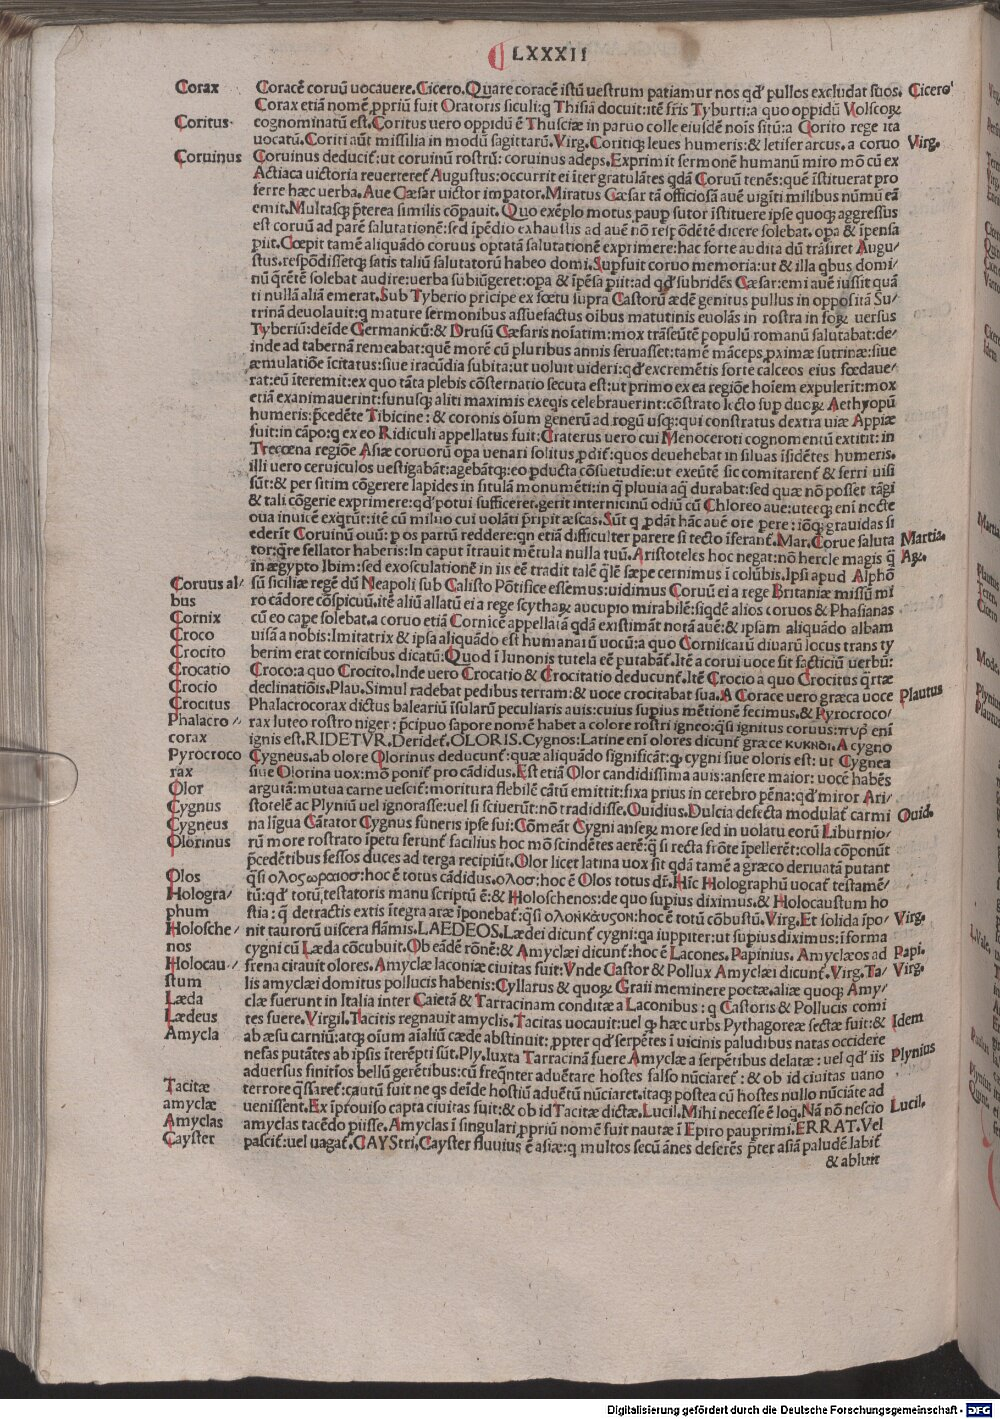 LXXXII
Corax Coracē coruū uocauere. Cicero. Quare coracē istū uestrum patiamur nos qd' pullos excludat suos. Cicero
Corax etiā nomē ꝓpriū fuit Oratoris siculi: q Thisiā docuit: itē fr̄is Tyburti: a quo oppidū Volscoꝝ
Coritus cognominatū est. Coritus uero oppidū ē Thusciæ in paruo colle eiusdē nois sitū: a Corito rege ita
uocatū. Coriti aūt missilia in modū sagittarū. Virg. Coritiqꝫ leues humeris: & letifer arcus. a coruo Virg.
Coruinus Coruinus deducit̄: ut coruinū rostrū: coruinus adeps. Exprimit sermonē humanū miro mō cū ex
Actiaca uictoria reuerteret̄ Augustus: occurrit ei īter gratulātes qdā Coruū tenēs: quē īstituerat pro
ferre hæc uerba. Aue Cæsar uictor impator. Miratus Cæsar tā officiosā auē uigīti milibus nūmū eā
emit. Multasqꝫ p̄terea similis cōpauit. Quo exēplo motus paup sutor īstituere ipse quoqꝫ aggressus
est coruū ad parē salutationē: sed īpēdio exhaustis ad auē nō respōdētē dicere solebat. opa & īpensa
piit. Cœpit tamē aliquādo coruus optatā salutationē exprimere: hac forte audita dū trāsiret Augu/
stus. respōdissetqꝫ satis taliū salutatorū habeo domi. Supfuit coruo memoria: ut & illa qbus domi/
nū q̄rētē solebat audire: uerba subiūgeret: opa & īpēsa piit: ad qd' subridēs Cæsar: emi auē iussit quā
ti nullā aliā emerat. Sub Tyberio pricipe ex fœtu supra Castorū ædē genitus pullus in oppositā Su/
trinā deuolauit: q mature sermonibus assuefactus oibus matutinis euolās in rostra in foꝝ uersus
Tyberiū: deīde Germanicū: & Drusū Cæsaris noīatim: mox trāseūtē populū romanū salutabat: de/
inde ad tabernā remeabat: quē morē cū pluribus annis seruasset: tamē māceps ꝓximæ sutrinæ: siue
æmulatiōe īcitatus: siue iracūdia subita: ut uoluit uideri: qd' excremētis forte calceos eius fœdaue/
rat: eū īteremit: ex quo tāta plebis cōsternatio secuta est: ut primo ex ea regiōe hoīem expulerit: mox
etiā exanimauerint: funusqꝫ aliti maximis exeqis celebrauerint: cōstrato lecto sup duoꝝ Aethyopū
humeris: p̄cedēte Tibicine: & coronis oīum generū ad rogū usqꝫ: qui constratus dextra uiæ Appiæ
fuit: in cāpo: q ex eo Ridiculi appellatus fuit: Craterus uero cui Menoceroti cognomentū extitit: in
regiōe Asiæ coruorū opa uenari solitus ꝓdit̄: quos deuehebat in siluas īsidētes humeris.
illi uero ceruiculos uestigabāt: agebātqꝫ: eo ꝓducta cōsuetudie: ut exeūtē sic comitarent̄ & ferri uisi
sūt: & per sitim cōgerere lapides in situlā monumēti: in q̄ pluuia aq̄ durabat: sed quæ nō posset tāgi
& tali cōgerie exprimere: qd' potui sufficeret. gerit internicinū odiū cū Chloreo aue: uterqꝫ eni necte
oua inuicē exqrūt: itē cū miluo cui uolāti p̄ripit æscas. Sūt q ꝓdāt hāc auē ore pere: iōqꝫ grauidas si
ederit Coruinū ouū: p os partū reddere: qn etiā difficulter parere si tecto īferant̄. Mar. Corue saluta Martia.
tor: q̄re fellator haberis: In caput ītrauit mētula nulla tuū. Aristoteles hoc negat: nō hercle magis q̄ Aꝝ.
in ægypto Ibim: sed exosculationē in iis eē tradit talē q̄lē sæpe cernimus ī colūbis. Ipsi apud Alphō
Coruus al/ sū siciliæ regē dū Neapoli sub Calisto Pōtifice essemus: uidimus Coruū ei a rege Britaniæ missū mi
bus ro cādore cōspicuū. itē aliū allatū ei a rege scythaꝝ aucupio mirabilē: siqdē alios coruos & Phasianas
Cornix cū eo cape solebat. a coruo etiā Cornicē appellatā qdā existimāt notā auē: & ipsam aliquādo albam
Croco uisā a nobis: Imitatrix & ipsa aliquādo est humanarū uocū: a quo Corniscarū diuarū locus trans ty
Crocito berim erat cornicibus dicatū: Quod ī Iunonis tutela eē putabāt̄. Itē a corui uoce fit facticiū uerbū:
Crocatio Croco: a quo Crocito. Inde uero Crocatio & Crocitatio deducunt̄. Itē Crocio a quo Crocitus q̄rtæ
Crocio declinatiōis. Plau. Simul radebat pedibus terram: & uoce crocitabat sua. A Corace uero græca uoce Plautus
Crocitus Phalacrocorax dictus baleariū īsularū peculiaris auis: cuius supius mētionē fecimus. & Pyrocroco/
Phalacro/ rax luteo rostro niger: p̄cipuo sapore nomē habet a colore rostri igneo: q̄si ignitus coruus: πυρ eni
corax ignis est. RIDETVR. Deridet̄. OLORIS. Cygnos: Latine eni olores dicunt̄ græce κυκνοι. A cygno
Pyrocroco Cygneus. ab olore Olorinus deducunt̄: quæ aliquādo significāt̄: qꝫ cygni siue oloris est: ut Cygnea
rax siue Olorina uox: mō ponit̄ pro cādidus. Est etiā Olor candidissima auis: ansere maior: uocē habēs
Olor argutā: mutua carne uescit̄: moritura flebilē cātū emittit: fixa prius in cerebro pēna: qd' miror Ari/
Cygnus stotelē ac Plyniū uel ignorasse: uel si sciuerūt: nō tradidisse. Ouidius. Dulcia defecta modulat̄ carmi Ouid.
Cygneus na līgua Cātator Cygnus funeris ipse sui: Cōmeāt Cygni anseꝝ more sed in uolatu eorū Liburnio/
Olorinus rū more rostrato īpetu ferunt̄ facilius hoc mō scindētes aerē: q̄ si recta frōte īpellerēt: colla cōponūt
p̄cedētibus fessos duces ad terga recipiūt. Olor licet latina uox sit qdā tamē a græco deriuatā putant
Olos q̄si ολοσωραιοσ: hoc ē totus cādidus. ολοσ: hoc ē Olos totus dr̄. Hīc Holographū uocat̄ testamē/
Hologra/ tū: qd' totū, testatoris manu scriptū ē: & Holoschenos: de quo supius diximus. & Holocaustum ho
phum stia: q̄ detractis extis ītegra aræ īponebat̄: q̄si ολονκαυσον: hoc ē totū cōbustū. Virg. Et solida īpo/ Virg.
Holosche/ nit taurorū uiscera flāmis. LAEDEOS. Lædei dicunt̄ cygni: qa iuppiter: ut supius diximus: ī forma
nos cygni cū Læda cōcubuit. Ob eādē rōnē: & Amyclæi dicunt̄: hoc ē Lacones. Papinius. Amyclæos ad Papi.
Holocau/ frena citauit olores. Amyclæ laconiæ ciuitas fuit: Vnde Castor & Pollux Amyclæi dicunt̄. Virg. Ta/ Virg.
stum lis amyclæi domitus pollucis habenis: Cyllarus & quoꝝ Graii meminere poetæ. aliæ quoqꝫ Amy/
Læda clæ fuerunt in Italia inter Caietā & Tarracinam conditæ a Laconibus: q Castoris & Pollucis comi
Lædeus tes fuere. Virgil. Tacitis regnauit amyclis. Tacitas uocauit: uel qꝫ hæc urbs Pythagoreæ sectæ fuit: & Idem
Amycla ab æsu carniū: atqꝫ oīum aīaliū cæde abstinuit: ꝓpter qd' serpētes ī uicinis paludibus natas occidere
nefas putātes ab ipsis īterēpti sūt. Ply. Iuxta Tarracinā fuere Amyclæ a serpētibus delatæ: uel qd' iis Plynius
aduersus finitīos bellū gerētibus: cū freqnter aduētare hostes falso nūciaret̄: & ob id ciuitas uano
Tacitæ terrore q̄ssaret̄: cautū fuit ne qs deīde hostiū aduētū nūciaret. itaqꝫ postea cū hostes nullo nūciāte ad
amyclæ uenissent. Ex īprouiso capta ciuitas fuit: & ob id Tacitæ dictæ. Lucil. Mihi necesse ē loq. Nā nō nescio Lucil.
Amyclas amyclas tacēdo piisse. Amyclas ī singulari ꝓpriū nomē fuit nautæ ī Epiro pauprimi. ERRAT. Vel
Cayster pascit̄: uel uagat̄. CAYStri, Cayster fluuius ē asiæ: q multos secū ānes deferēs p̄ter asiā paludē labit̄
& abluit
Digitalisierung gefördert durch die Deutsche Forschungsgemeinschaft - DFG